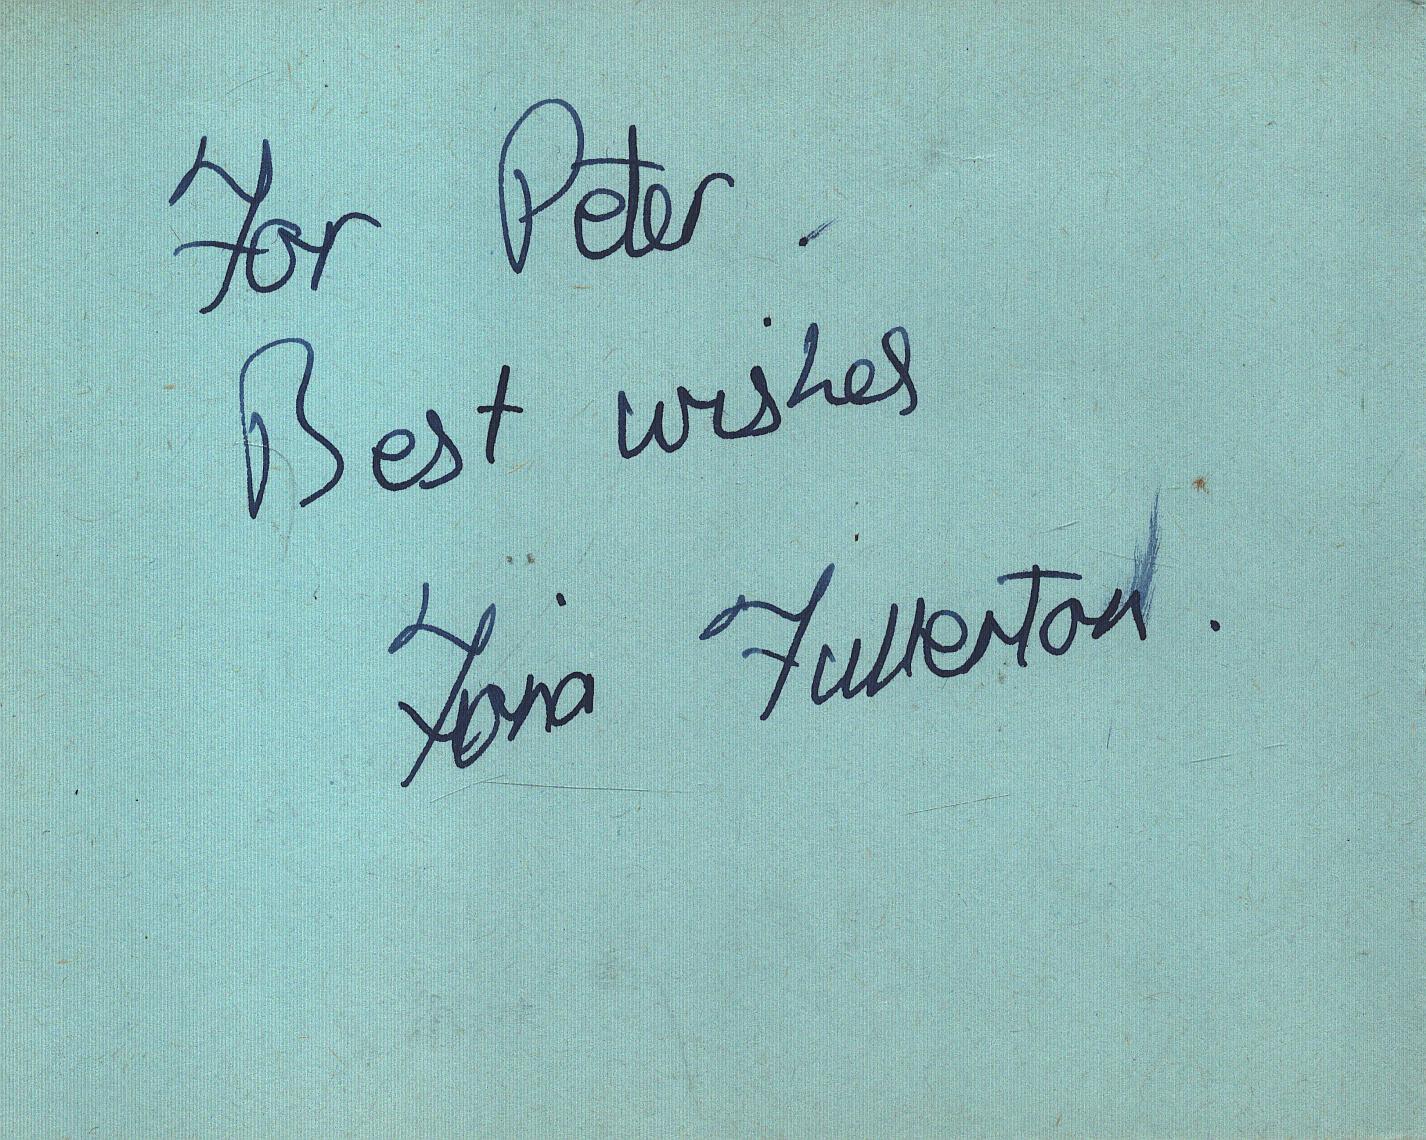 For Peter.
Best wishes
Fiona Fullerton.